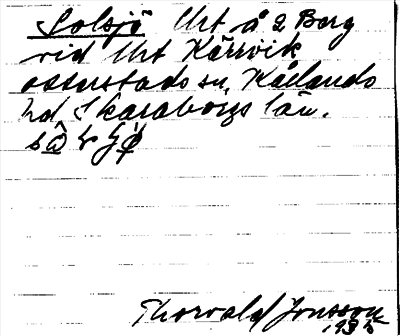 Solsjö Urt å 2 Berg
vid Urt Kärrvik
otterstads sn. Kållands
hd. Skaraborgs län.
Thorvald Jonsson
1935